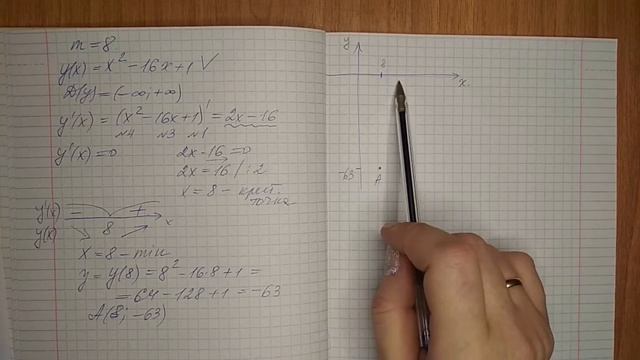 m = 8
y(x) = x² - 16x + 1 √
D(y) = (-∞; +∞)
y'(x) = (x² - 16x + 1)' = 2x - 16
№4 №3 №1
y'(x) = 0 2x - 16 = 0
2x = 16 / : 2
x = 8 - крит. точка
y'(x) - + x
y(x) 8
x = 8 - min
y = y(8) = 8² - 16·8 + 1 =
= 64 - 128 + 1 = -63
A(8; -63)
y
8
x
-63
A